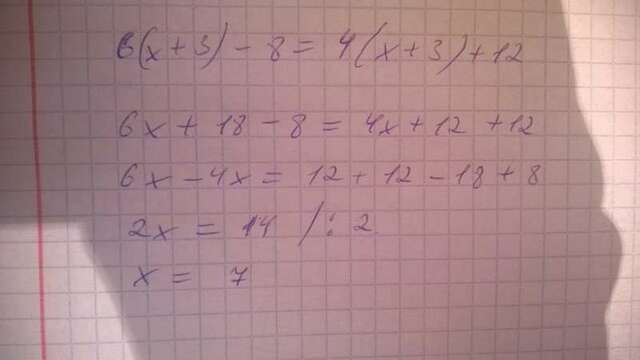 6(x+3)-8=4(x+3)+12
6x+18-8=4x+12+12
6x-4x=12+12-18+8
2x=14 /:2
x=7